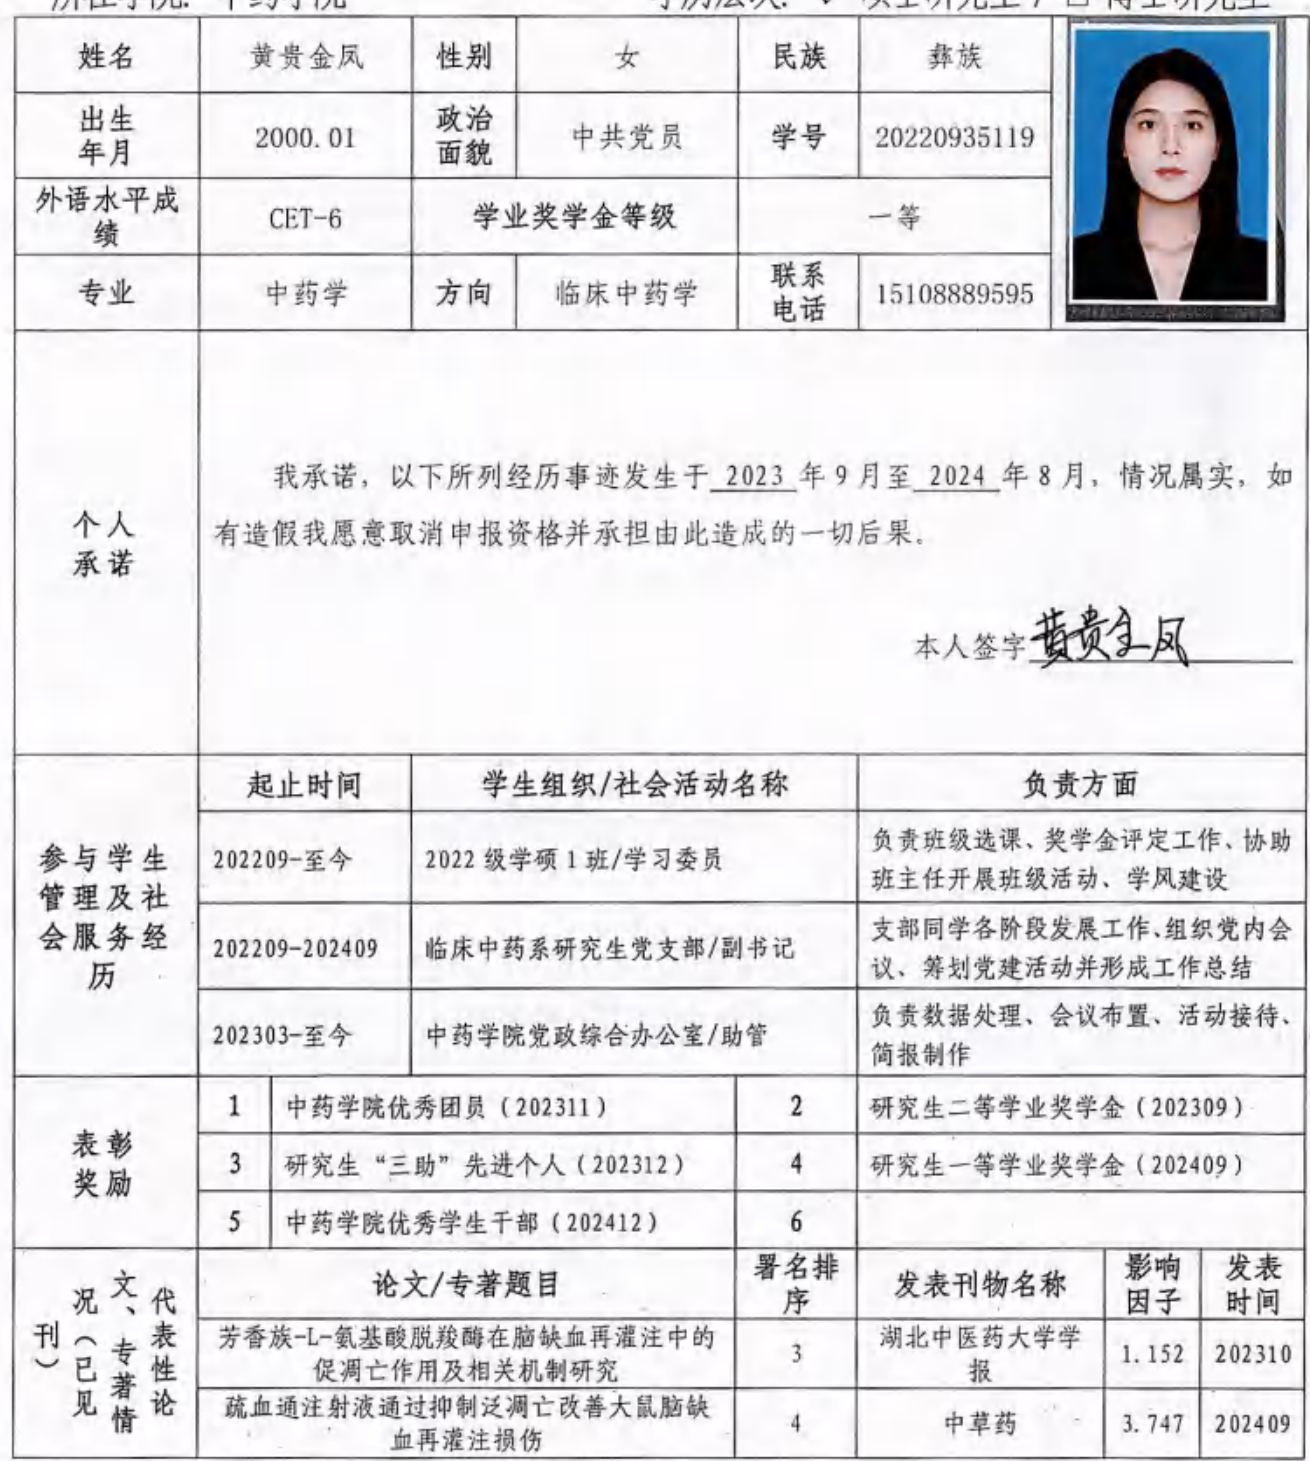 所在学院: 中药学院 学历层次: ✓ 硕士研究生 / □ 博士研究生
姓名 黄贵金凤 性别 女 民族 彝族
出生年月 2000.01 政治面貌 中共党员 学号 20220935119
外语水平成绩 CET-6 学业奖学金等级 一等
专业 中药学 方向 临床中药学 联系电话 15108889595
个人承诺
我承诺，以下所列经历事迹发生于 2023 年 9 月至 2024 年 8 月，情况属实，如
有造假我愿意取消申报资格并承担由此造成的一切后果。
本人签字 黄贵金凤
参与学生管理及社会服务经历
起止时间 学生组织/社会活动名称 负责方面
202209-至今 2022 级学硕 1 班/学习委员 负责班级选课、奖学金评定工作、协助
班主任开展班级活动、学风建设
202209-202409 临床中药系研究生党支部/副书记 支部同学各阶段发展工作、组织党内会
议、筹划党建活动并形成工作总结
202303-至今 中药学院党政综合办公室/助管 负责数据处理、会议布置、活动接待、
简报制作
表彰奖励
1 中药学院优秀团员（202311） 2 研究生二等学业奖学金（202309）
3 研究生“三助”先进个人（202312） 4 研究生一等学业奖学金（202409）
5 中药学院优秀学生干部（202412） 6
代表性论文、专著情况（已见刊）
论文/专著题目 署名排序 发表刊物名称 影响因子 发表时间
芳香族-L-氨基酸脱羧酶在脑缺血再灌注中的
促凋亡作用及相关机制研究 3 湖北中医药大学学报 1.152 202310
疏血通注射液通过抑制泛凋亡改善大鼠脑缺
血再灌注损伤 4 中草药 3.747 202409